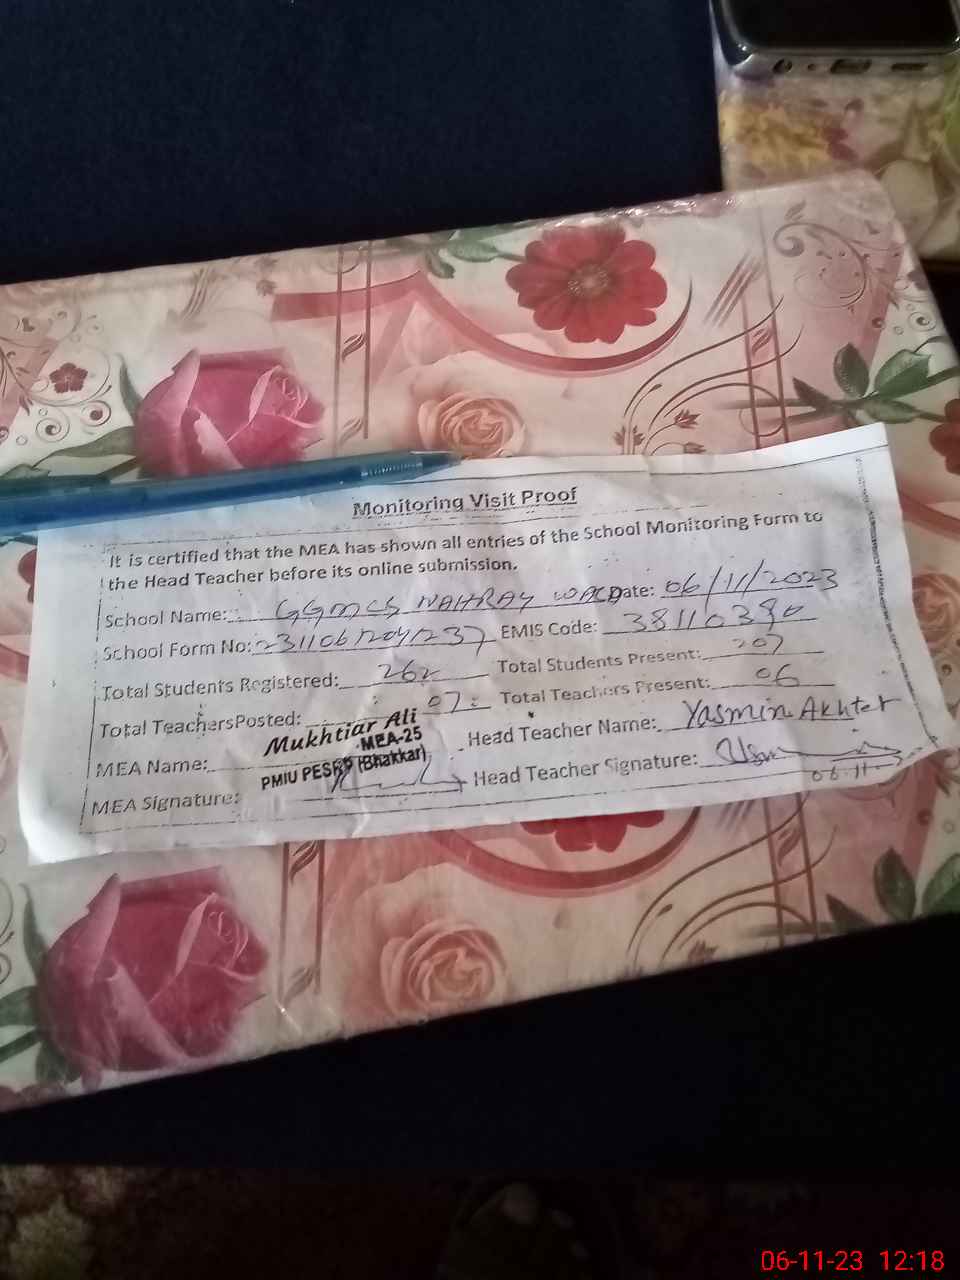 Monitoring Visit Proof
It is certified that the MEA has shown all entries of the School Monitoring Form to
the Head Teacher before its online submission.
School Name: GGMCS NAHRAY WALA Date: 06/11/2023
School Form No: 231106 1204 1237 EMIS Code: 38110390
Total Students Registered: 262 Total Students Present: 207
Total TeachersPosted: 07 Total Teachers Present: 06
MEA Name: Mukhtiar Ali Head Teacher Name: Yasmin Akhter
MEA-25
PMIU PESRP (Bhakkar)
MEA Signature: Head Teacher Signature:
06-11-23 12:18